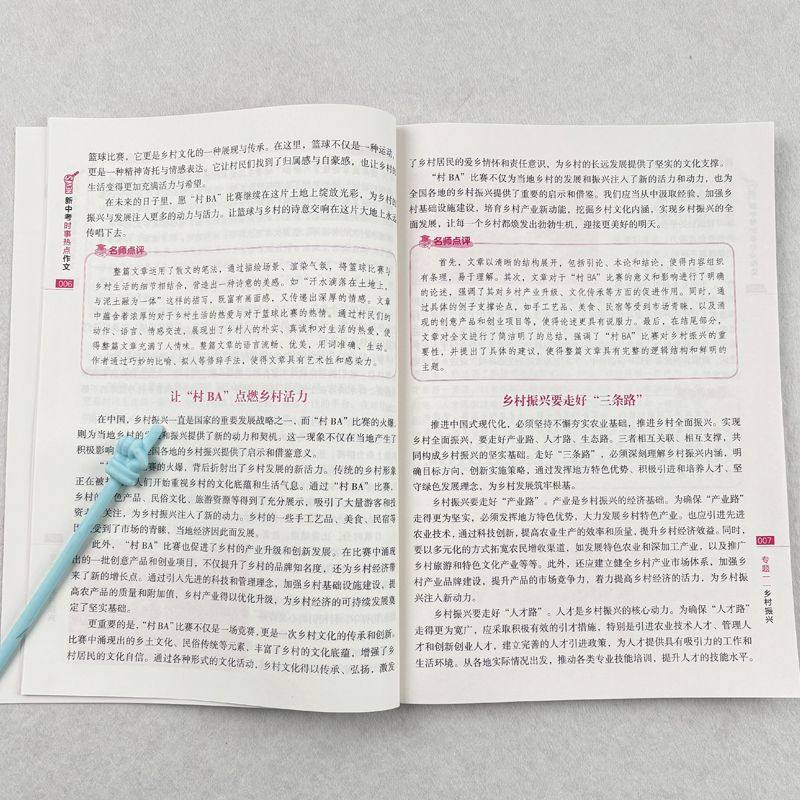 篮球比赛，它更是乡村文化的一种展现与传承。在这里，篮球不仅是一种运动，
更是一种精神寄托与情感表达。它让村民们找到了归属感与自豪感，也让乡村的
生活变得更加充满活力与希望。
在未来的日子里，愿“村 BA”比赛继续在这片土地上绽放光彩，为乡村的
振兴与发展注入更多的动力与活力。让篮球与乡村的诗意交响在这片大地上永远
传唱下去。
新中考时事热点作文
006
名师点评
整篇文章运用了散文的笔法，通过描绘场景、渲染气氛，将篮球比赛与
乡村生活的细节相结合，营造出一种诗意的美感。如“汗水滴落在土地上，
与泥土融为一体”这样的描写，既富有画面感，又传递出深厚的情感。文章
中蕴含着浓厚的对于乡村生活的热爱与对于篮球比赛的热情。通过村民们的
动作、语言、情感交流，展现出了乡村人的朴实、真诚和对生活的热爱，使
得整篇文章充满了人情味。整篇文章的语言流畅、优美，用词准确、生动。
作者通过巧妙的比喻、拟人等修辞手法，使得文章具有艺术性和感染力。
让“村 BA”点燃乡村活力
在中国，乡村振兴一直是国家的重要发展战略之一，而“村 BA”比赛的火爆，
则为当地乡村的发展和振兴提供了新的动力和契机。这一现象不仅在当地产生了
积极影响 国各地的乡村振兴提供了启示和借鉴意义。
赛的火爆，背后折射出了乡村发展的新活力。传统的乡村形象
正在被 人们开始重视乡村的文化底蕴和生活气息。通过“村 BA”比赛，
乡村的 色产品、民俗文化、旅游资源等得到了充分展示，吸引了大量游客和投
资者 关注，为乡村注入了新的动力。乡村的一些手工艺品、美食、民宿等
受到了市场的青睐，当地经济因此而发展。
此外，“村 BA”比赛也促进了乡村的产业升级和创新发展。在比赛中涌现
出的一批创意产品和创业项目，不仅提升了乡村的品牌知名度，还为乡村经济带
来了新的增长点。通过引入先进的科技和管理理念，加强乡村基础设施建设，提
高农产品的质量和附加值，乡村产业得以优化升级，为乡村经济的可持续发展奠
定了坚实基础。
更重要的是，“村 BA”比赛不仅是一场竞赛，更是一次乡村文化的传承和创新。
比赛中涌现出的乡土文化、民俗传统等元素，丰富了乡村的文化底蕴，增强了乡
村居民的文化自信。通过各种形式的文化活动，乡村文化得以传承、弘扬，激发
了乡村居民的爱乡情怀和责任意识，为乡村的长远发展提供了坚实的文化支撑。
“村 BA”比赛不仅为当地乡村的发展和振兴注入了新的活力和动力，也为
全国各地的乡村振兴提供了重要的启示和借鉴。我们应当从中汲取经验，加强乡
村基础设施建设，培育乡村产业新动能，挖掘乡村文化内涵，实现乡村振兴的全
面发展，让每一个乡村都焕发出勃勃生机，迎接更美好的明天。
名师点评
首先，文章以清晰的结构展开，包括引论、本论和结论，使得内容组织
有条理，易于理解。其次，文章对于“村 BA”比赛的意义和影响进行了明确
的论述，强调了其对乡村产业升级、文化传承等方面的促进作用。同时，通
过具体的例子支撑论点，如手工艺品、美食、民宿等受到市场青睐，以及涌
现的创意产品和创业项目等，使得论述更具有说服力。最后，在结尾部分，
文章对全文进行了简洁明了的总结，强调了“村 BA”比赛对乡村振兴的重
要性，并提出了具体的建议，使得整篇文章具有完整的逻辑结构和鲜明的
主题。
乡村振兴要走好“三条路”
推进中国式现代化，必须坚持不懈夯实农业基础，推进乡村全面振兴。实现
乡村全面振兴，要走好产业路、人才路、生态路。三者相互关联、相互支撑，共
同构成乡村振兴的坚实基础。走好“三条路”，必须深刻理解乡村振兴内涵，明
确目标方向，创新实施策略，通过发挥地方特色优势、积极引进和培养人才、坚
守绿色发展理念，为乡村发展筑牢根基。
乡村振兴要走好“产业路”。产业是乡村振兴的经济基础。为确保“产业路”
走得更为坚实，必须发挥地方特色优势，大力发展乡村特色产业。也应引进先进
农业技术，通过科技创新，提高农业生产的效率和质量，提升乡村经济效益。同时，
要以多元化的方式拓宽农民增收渠道，如发展特色农业和深加工产业，以及推广
乡村旅游和特色文化产业等等。此外，还应建立健全乡村产业市场体系，加强乡
村产业品牌建设，提升产品的市场竞争力，着力提高乡村经济的活力，为乡村振
兴注入新动力。
乡村振兴要走好“人才路”。人才是乡村振兴的核心动力。为确保“人才路”
走得更为宽广，应采取积极有效的引才措施，特别是引进农业技术人才、管理人
才和创新创业人才，建立完善的人才引进政策，为人才提供具有吸引力的工作和
生活环境。从各地实际情况出发，推动各类专业技能培训，提升人才的技能水平。
007
专题一 乡村振兴